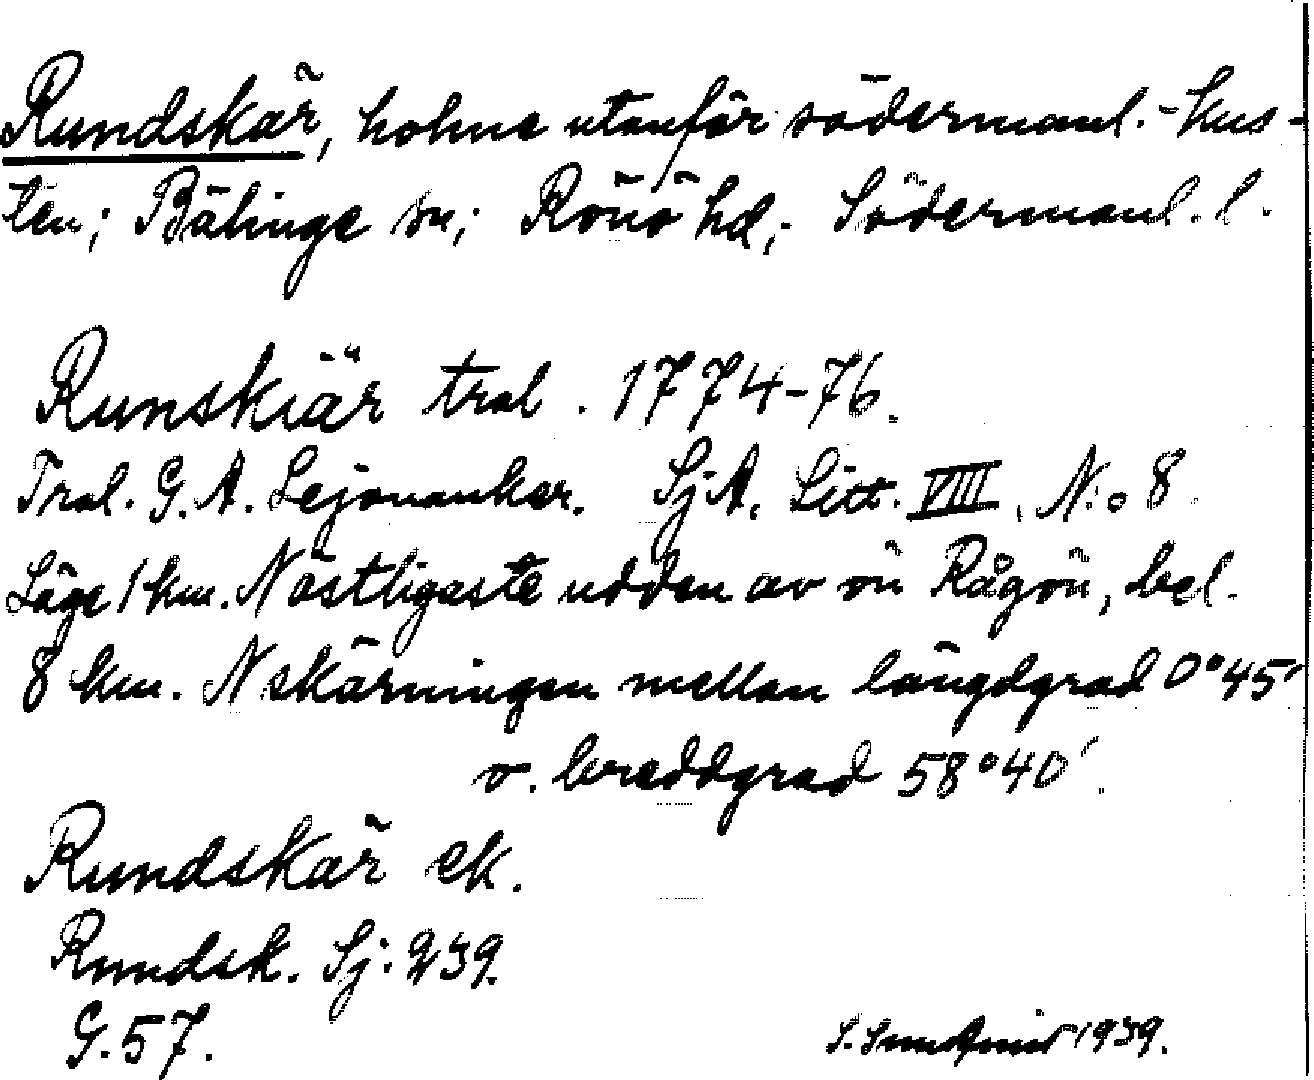 Rundskär, holme utanför södermanl.-kus-
ten; Bälinge sn; Rönö hd; Södermanl. l.
Runskiär tral. 1774-76.
Tral. G. A. Lejonanker. SjA. Litt. VIII, N:o 8
Läge 1 km. N östligaste udden av ön Rågön, bel.
8 km. N skärningen mellan längdgrad 0°45'
o. breddgrad 58°40'.
Rundskär ek.
Rundsk. Sj: 239.
G. 57.
S. 1939.